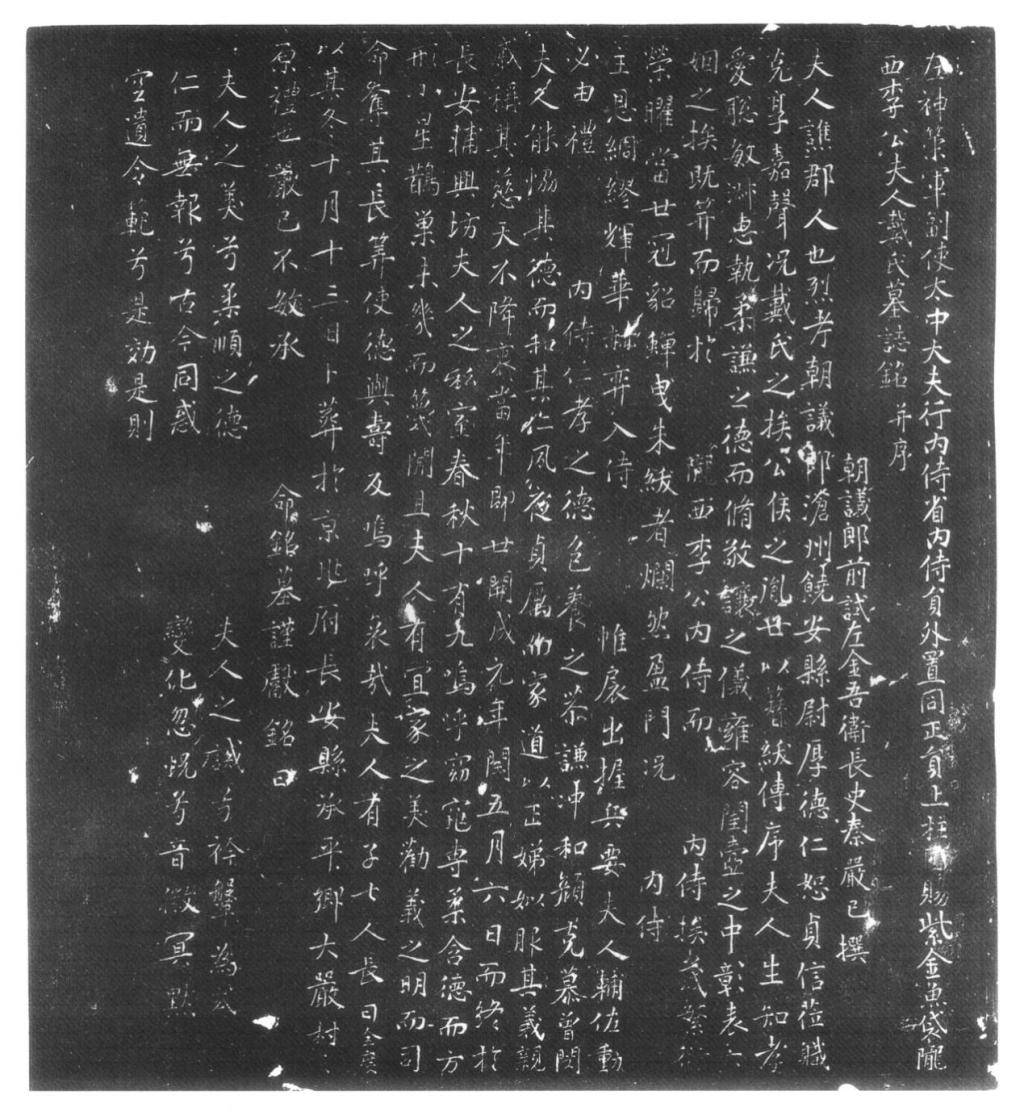 左神策軍副使太中大夫行內侍省內侍員外置同正員上柱國賜紫金魚袋隴
西李公夫人戴氏墓誌銘并序
朝議郎前試左金吾衛長史秦嚴己撰
夫人譙郡人也烈考朝議郎滄州饒安縣尉厚德仁恕貞信莅職
克享嘉聲况戴氏之族公侯之胤世以簪紱傳序夫人生知孝
愛聡敏淋惠執柔謙之德而脩敬讓之儀雍容閨壼之中彰表六
姻之族既笄而歸於 隴西李公內侍而 內侍族茂繁衍
榮曜當世冠貂蟬曳朱紱者爛然盈門况 內侍
主恩綢繆輝華赫弈入侍 帷扆出握兵要夫人輔佐動
必由禮 內侍仁孝之德色養之恭謙沖和顏克慕曾閔
夫人能恊其德而和其仁夙夜貞厲而家道以正娣姒服其義親
戚稱其慈天不降衷當年即世開成元年閏五月六日而終於
長安輔興坊夫人之私室春秋十有九嗚呼窈窕專柔含德而方
形小星鵲巢未幾而甍閱且夫人有宜家之美勸義之明而司
命奪其長筭使德與壽反嗚呼哀哉夫人有子七人長曰全慶
以其冬十月十三日卜葬於京兆府長安縣承平鄉大嚴村
原禮也嚴己不敏承 命銘墓謹獻銘曰
夫人之美兮柔順之德 夫人之誡兮衿鞶為式
仁而無報兮古今同惑 變化忽怳兮音徽冥默
空遺令範兮是効是則